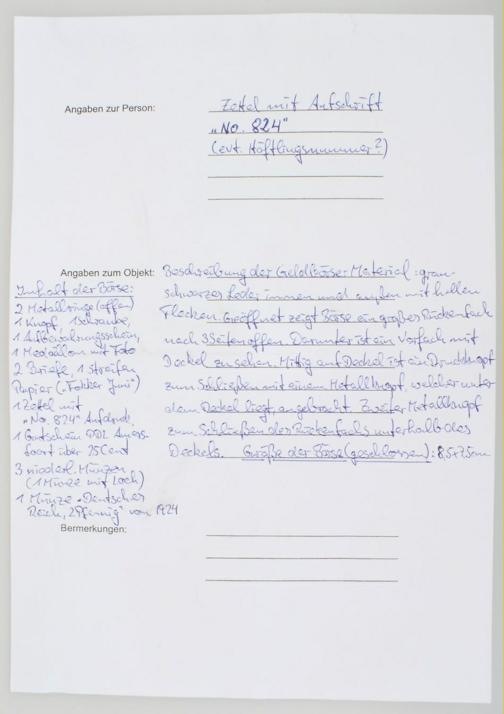 Angaben zur Person:
Zettel mit Aufschrift
„No. 824"
(evt. Häftlingsnummer?)
Angaben zum Objekt:
Beschreibung der Geldbörse: Material: grau-
schwarzes Leder innen und außen mit hellen
Flecken. Geöffnet zeigt Börse ein großes Rückenfach
nach 3 Seiten offen. Darunter ist ein Vorfach mit
Deckel zu sehen. Mittig auf Deckel ist ein Druckknopf
zum Schließen mit einem Metallknopf welcher unter
dem Deckel liegt, angebracht. Zweiter Metallknopf
zum Schließen des Rückenfachs unterhalb des
Deckels. Größe der Börse (geschlossen): 8,5x7,5cm
Inhalt der Börse:
2 Metallringe (offen)
1 Knopf, 1 Schraube,
1 Aufbewahrungsschein,
1 Medaillon mit Foto
2 Briefe, 1 Streifen
Papier („Fokker Juni")
1 Zettel mit
„No. 824" Aufdruck
1 Gutschein Amers-
foort über 25 Cent
3 niederl. Münzen
(1 Münze mit Loch)
1 Münze „Deutsches
Reich, 2 Pfennig" von 1924
Bermerkungen: